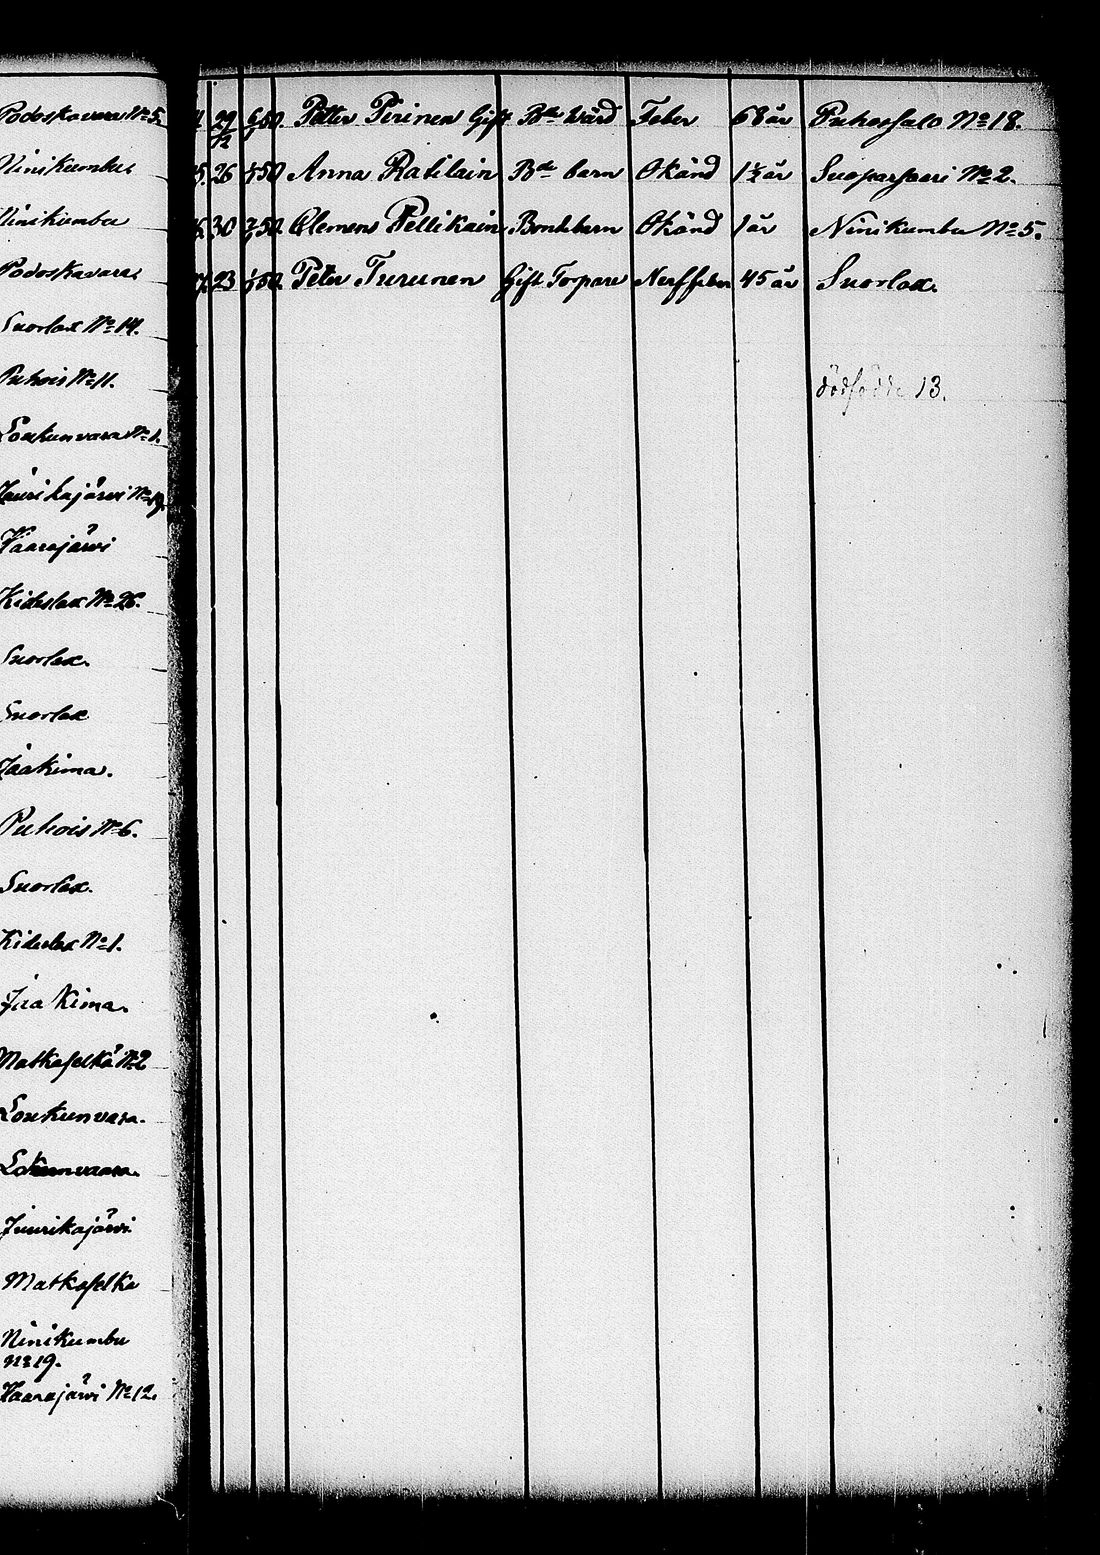 Podoskavara No 5.
Ninikumbu
Ninikumbu
Podoskavara
Suorlax No 14.
Puhois No 11.
Loukunvara No 1.
Juurikajärvi No 19.
Vaarajärvi
Kideslax No 26.
Suorlax.
Suorlax
Jaakima.
Puhois No 6.
Suorlax.
Kideslax No 1.
Jaakima.
Matkaselkä No 2
Loukunvara.
Lokunvaara.
Juurikajärvi
Matkaselkä
Ninikumbu
No 19.
Vaarajärvi No 12.
29/12 Petter Pirinen Gift Bde Wärd Feber 68 år Puhossalo No 18.
26 Anna Ratilain Bde barn Okänd 1½ år Suoparsaari No 2.
30 Clemens Pellikain Bondebarn Okänd 1 år Ninikumbu No 5.
23 Peter Turunen Gift Torpare Nerffeber 45 år Suorlax.
dödfödde 13.